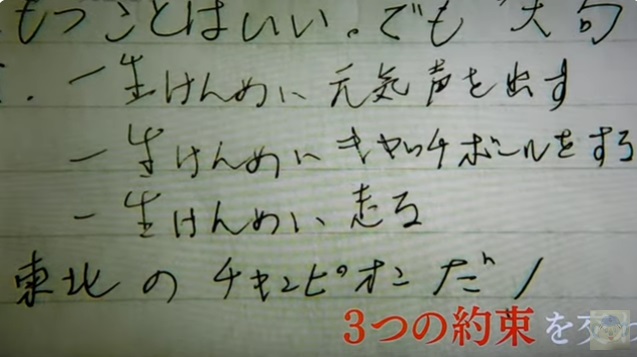 もつことはいい。でも
一生けんめいに 元気声を出す
一生けんめいに キャッチボールをする
一生けんめい 走る
東北の チャンピオンだ!
3つの約束を交わ